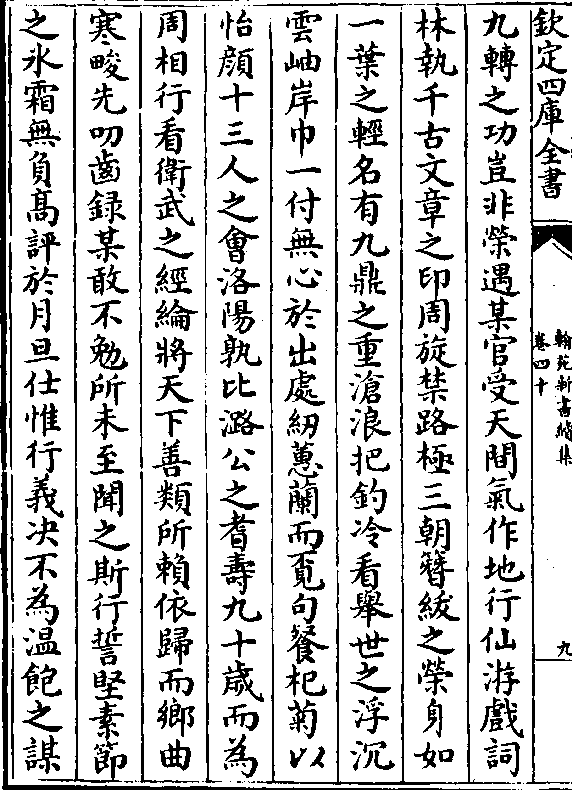 欽定四庫全書
翰苑新書續集
卷四十
九
九轉之功豈非榮遇某官受天間氣作地行仙游戲詞
林執千古文章之印周旋禁路極三朝簪紱之榮身如
一葉之輕名有九鼎之重滄浪把釣冷看舉世之浮沉
雲岫岸巾一付無心於出處紉蕙蘭而覓句餐杞菊以
怡顔十三人之會洛陽孰比潞公之耆壽九十歲而為
周相行看衛武之經綸將天下善類所賴依歸而鄉曲
寒畯先叨齒録某敢不勉所未至聞之斯行誓堅素節
之氷霜無負髙評於月旦仕惟行義决不為温飽之謀